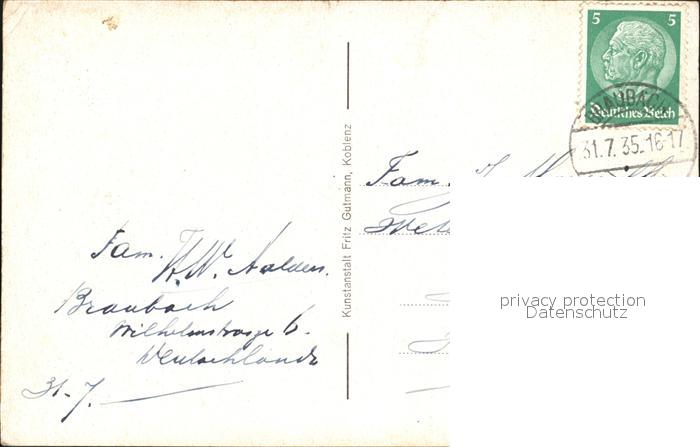 5 5
Deutsches Reich
BRAUBACH
31.7.35.16-17
Kunstanstalt Fritz Gutmann, Koblenz
Fam.
Fam.
W. Aalders.
Braubach
Wilhelmstrasse 6.
Deutschland
31-7.
privacy protection
Datenschutz